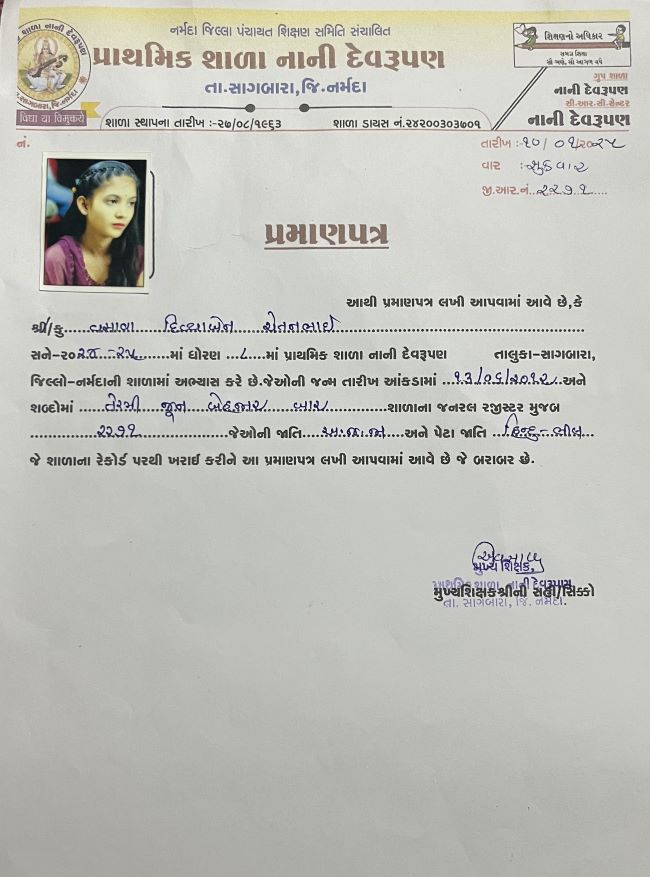 નર્મદા જિલ્લા પંચાયત શિક્ષણ સમિતિ સંચાલિત
પ્રાથમિક શાળા નાની દેવરૂપણ
તા.સાગબારા,જિ.નર્મદા
વિદ્યા યા વિમુક્તયે
શાળા સ્થાપના તારીખ :-૨૭/૦૮/૧૯૬૩ શાળા ડાયસ નં.૨૪૨૦૦૩૦૩૭૦૧
શિક્ષણનો અધિકાર
સમગ્ર શિક્ષા
સૌ ભણે, સૌ આગળ વધે
ગૃપ શાળા
નાની દેવરૂપણ
સી.આર.સી.સેન્ટર
નાની દેવરૂપણ
નં.
તારીખ :-૧૦/૦૧/૨૦૨૫
વાર :-શુક્રવાર
જી.આર.નં..૨૨૭૧......
પ્રમાણપત્ર
આથી પ્રમાણપત્ર લખી આપવામાં આવે છે,કે
શ્રી/કુ.....વસાવા.....દિવ્યાબેન.....ચેતનભાઈ
સને-૨૦૨૪-૨૫.......માં ધોરણ ...૮....માં પ્રાથમિક શાળા નાની દેવરૂપણ તાલુકા-સાગબારા,
જિલ્લો-નર્મદાની શાળામાં અભ્યાસ કરે છે.જેઓની જન્મ તારીખ આંકડામાં ..૧૩/૦૬/૨૦૧૨..અને
શબ્દોમાં ....તેરમી...જૂન...બેહજાર...બાર..............શાળાના જનરલ રજીસ્ટર મુજબ
..............૨૨૭૧..................જેઓની જાતિ ...અ.જ.જા....અને પેટા જાતિ ..હિન્દુ-ભીલ...
જે શાળાના રેકોર્ડ પરથી ખરાઈ કરીને આ પ્રમાણપત્ર લખી આપવામાં આવે છે જે બરાબર છે.
મુખ્ય શિક્ષક,
પ્રાથમિક શાળા, નાની દેવરૂપણ
મુખ્યશિક્ષકશ્રીની સહી/સિક્કો
તા. સાગબારા, જિ. નર્મદા.